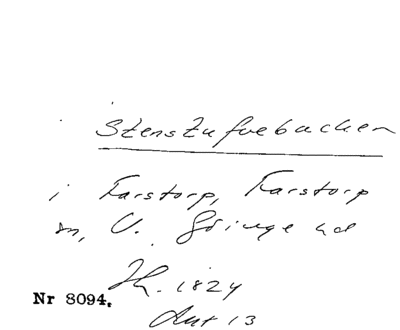 Stenstufvebacken
i Farstorp, Farstorp
sn, V. Göinge hd
Th. 1824
Nr 8094.
Ant 13